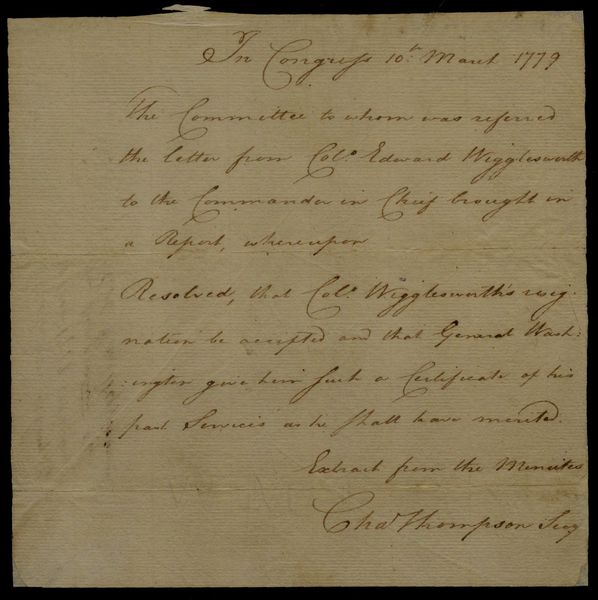 In Congress 10th March 1779
The Committee to whom was referred
the letter from Colo. Edward Wigglesworth
to the Commander in Chief brought in
a Report, whereupon
Resolved, that Colo. Wigglesworth's resig-
nation be accepted and that General Wash:
:ington give him such a Certificate of his
past Services as he shall have merited.
Extract from the Minutes
Chas Thompson Secy